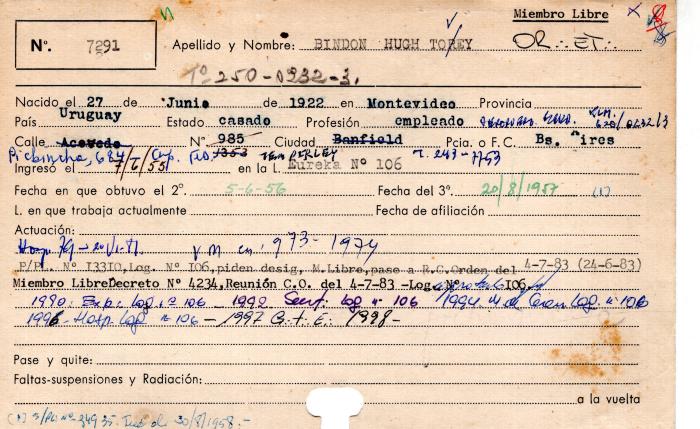 Miembro Libre
N°. 7291
Apellido y Nombre: BINDON HUGH TOREY OR∴ ET∴
T° 250-0932-3.
Nacido el 27 de Junio de 1922 en Montevideo Provincia
País Uruguay Estado casado Profesión empleado
Calle Acevedo N° 985 Ciudad Banfield Pcia. o F.C. Bs. Aires
Pichincha, 684 1353 TEMPERLEY T. 243-7753
Ingresó el 7/6/55 en la L. Eureka N° 106
Fecha en que obtuvo el 2°. 5-6-56 Fecha del 3°. 20/8/1957 (1)
L. en que trabaja actualmente Fecha de afiliación
Actuación:
V M en 1973-1974
P/PL. N° I33IO, Log. N° I06, piden desig, M.Libre, pase a R.C.Orden del 4-7-83 (24-6-83)
Miembro LibreDecreto N° 4234, Reunión C.O. del 4-7-83 -Log. N° I06.
1990. Exp. Log. n° 106 - 1992 Log n° 106 / 1994 Log n° 106
1996 - Hosp Log n° 106 - 1997 G. t. E. 1998 -
Pase y quite:
Faltas-suspensiones y Radiación:
a la vuelta
(1) s/pl. N° 24935. de 30/8/1958.-